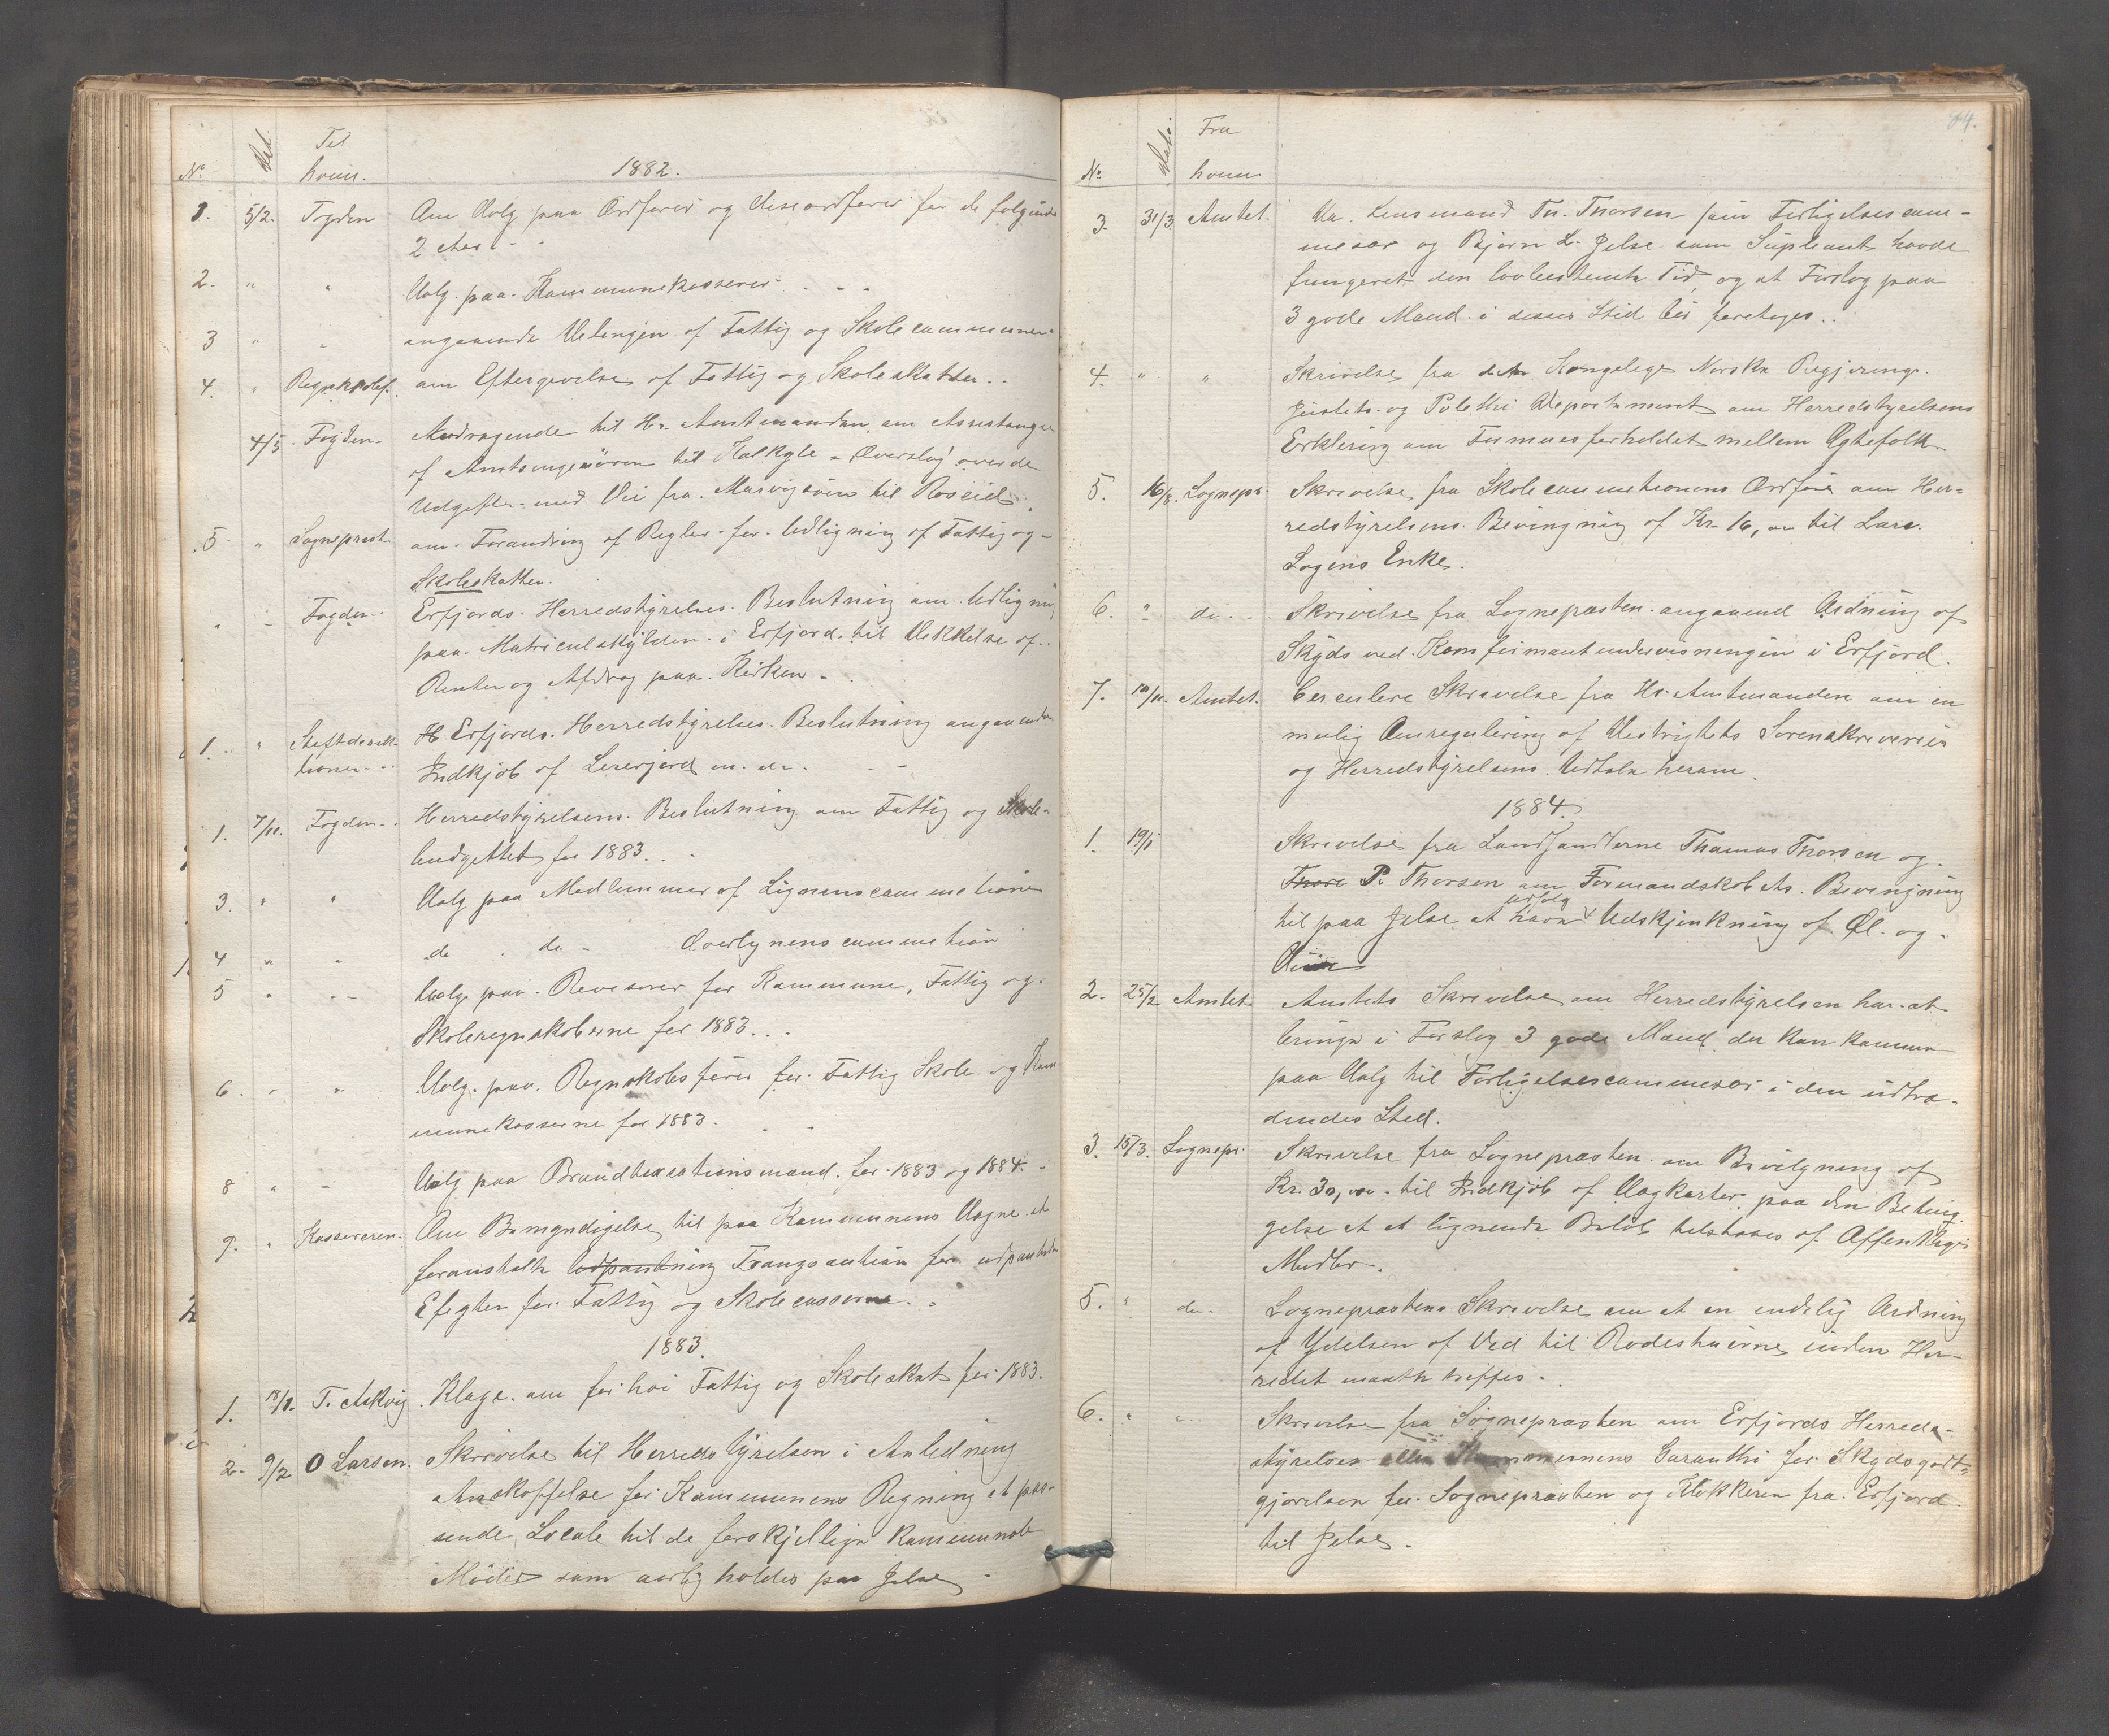 Til
No Dat. hvem. 1882.
1. 5/2. Fogden Om Valg paa Ordfører og Viseordfører for de følgende
2 Aar.
2. " " Valg paa Kommunekasserer
3 " " angaaende Utlingen af Fattig og Skolecommunen
4. " Regnskabsf. om Eftergivelse af Fattig og Skoleskatter..
4/5 Fogden. Andragende til Hr. Amtmanden om Assistange
af Amtsingeniören til Kalkyle - Overslag over de
Udgifter med Vei fra Marvigsöien til Roseid.
5. " Sogneprest. om Forandring af Regler for Udligning af Fattig og
Skoleskatten.
" " Fogden. Erfjords Herredstyrelses Beslutning om Udligning
paa Matriculskylden i Erfjord til Dekkelse af
Renter og Afdrag paa Kirken.
1. " Stiftdirek- H Erfjords Herredstyrelses Beslutning angaaende
tionen Indkjöb af Lærerjord m. m.
1. 7/11. Fogden Herredstyrelsens Beslutning om Fattig og Skole-
budgettet for 1883.
3. " " Valg paa Medlemmer af Ligningscommetionen
4 " " do do Overlignenscommetion
5 " " Valg paa Revisorer for Kommune, Fattig og
Skoleregnskaberne for 1883...
6. " " Valg paa Regnskabsförer for Fattig Skole og Kom
munekasserne for 1883.
8 " " Valg paa Brandtaxationsmænd for 1883 og 1884.
9. " Kassereren. Om Bemyndigelse til paa Kommunens Vegne at
foranstalte Udpantning Tvangsauktion for udpantede
Efegter for Fattig og Skolecasserne.
1883.
1. 18/1. T. Askvig. Klage om for höi Fattig og Skoleskat for 1883.
2. 9/2 O Larsen. Skrivelse til Herredstyrelsen i Anledning
Anskaffelse for Kommunens Regning et pas-
sende Locale til de forskjellige Kommunale
Möder som aarlig holdes paa Jelse
84.
Fra
No Dato. hvem
3. 31/3. Amtet. Lensmand Th. Thorsen som Forligelsescom-
mesær og Bjørn L. Jelse som Supleant havde
fungeret den lovbestemte Tid, og at Forslag paa
3 gode Mænd i disses Sted bör foretages..
4. " " Skrivelse fra det Kongelige Norske Regjerings
Justits og Polethi Departement om Herredstyrelsens
Erklering om Formuesforholdet mellem Ægtefolk
5. 16/8. Sognepr. Skrivelse fra Skolecommetionens Ordförer om Her-
redstyrelsens Bevingning af Kr. 16,00 til Lars
Sogens Enke.
6. " do. Skrivelse fra Sognepresten angaaend Ordning af
Skyds ved Komfirmantundervisningen i Erfjord.
7. 10/11. Amtet. Cerculere Skrivelse fra Hr. Amtmanden om en
mulig Omregulering af Destrigtets Sorenskrivereier
og Herredstyrelsens Udtale herom.
1884.
1. 19/1 Skrivelse fra Landhandlerne Thomas Thorsen og
Thore P. Thorsen om Formandskabets Bevingning
til paa Jelse at have Udsalg Udskjenkning af Øl og
Viin
2. 25/2 Amtet Amtets Skrivelse om Herredstyrelsen har at
bringe i Forslag 3 gode Mænd der kan komme
paa Valg til Forligelsescommesær i den udtræ-
dendes Sted.
3. 15/3. Sognepr. Skrivelse fra Sognepresten om Bevilgning af
Kr. 30,00 til Indkjöb af Vægkarter paa den Beting-
gelse at et lignende Belöb tilstaaes af Offentlige
Medler.
5. " do. Sogneprestens Skrivelse om at en endelig Ordning
af Ydelsen af Ved til Rodeskolerne inden Her-
redet maatte treffes.
6. " " Skrivelse fra Sognepresten om Erfjords Herreds-
styrelses eller Kommunens Garanthi for Skydsgodt-
gjørelsen for Sognepresten og Klokkeren fra Erfjord
til Jelse.